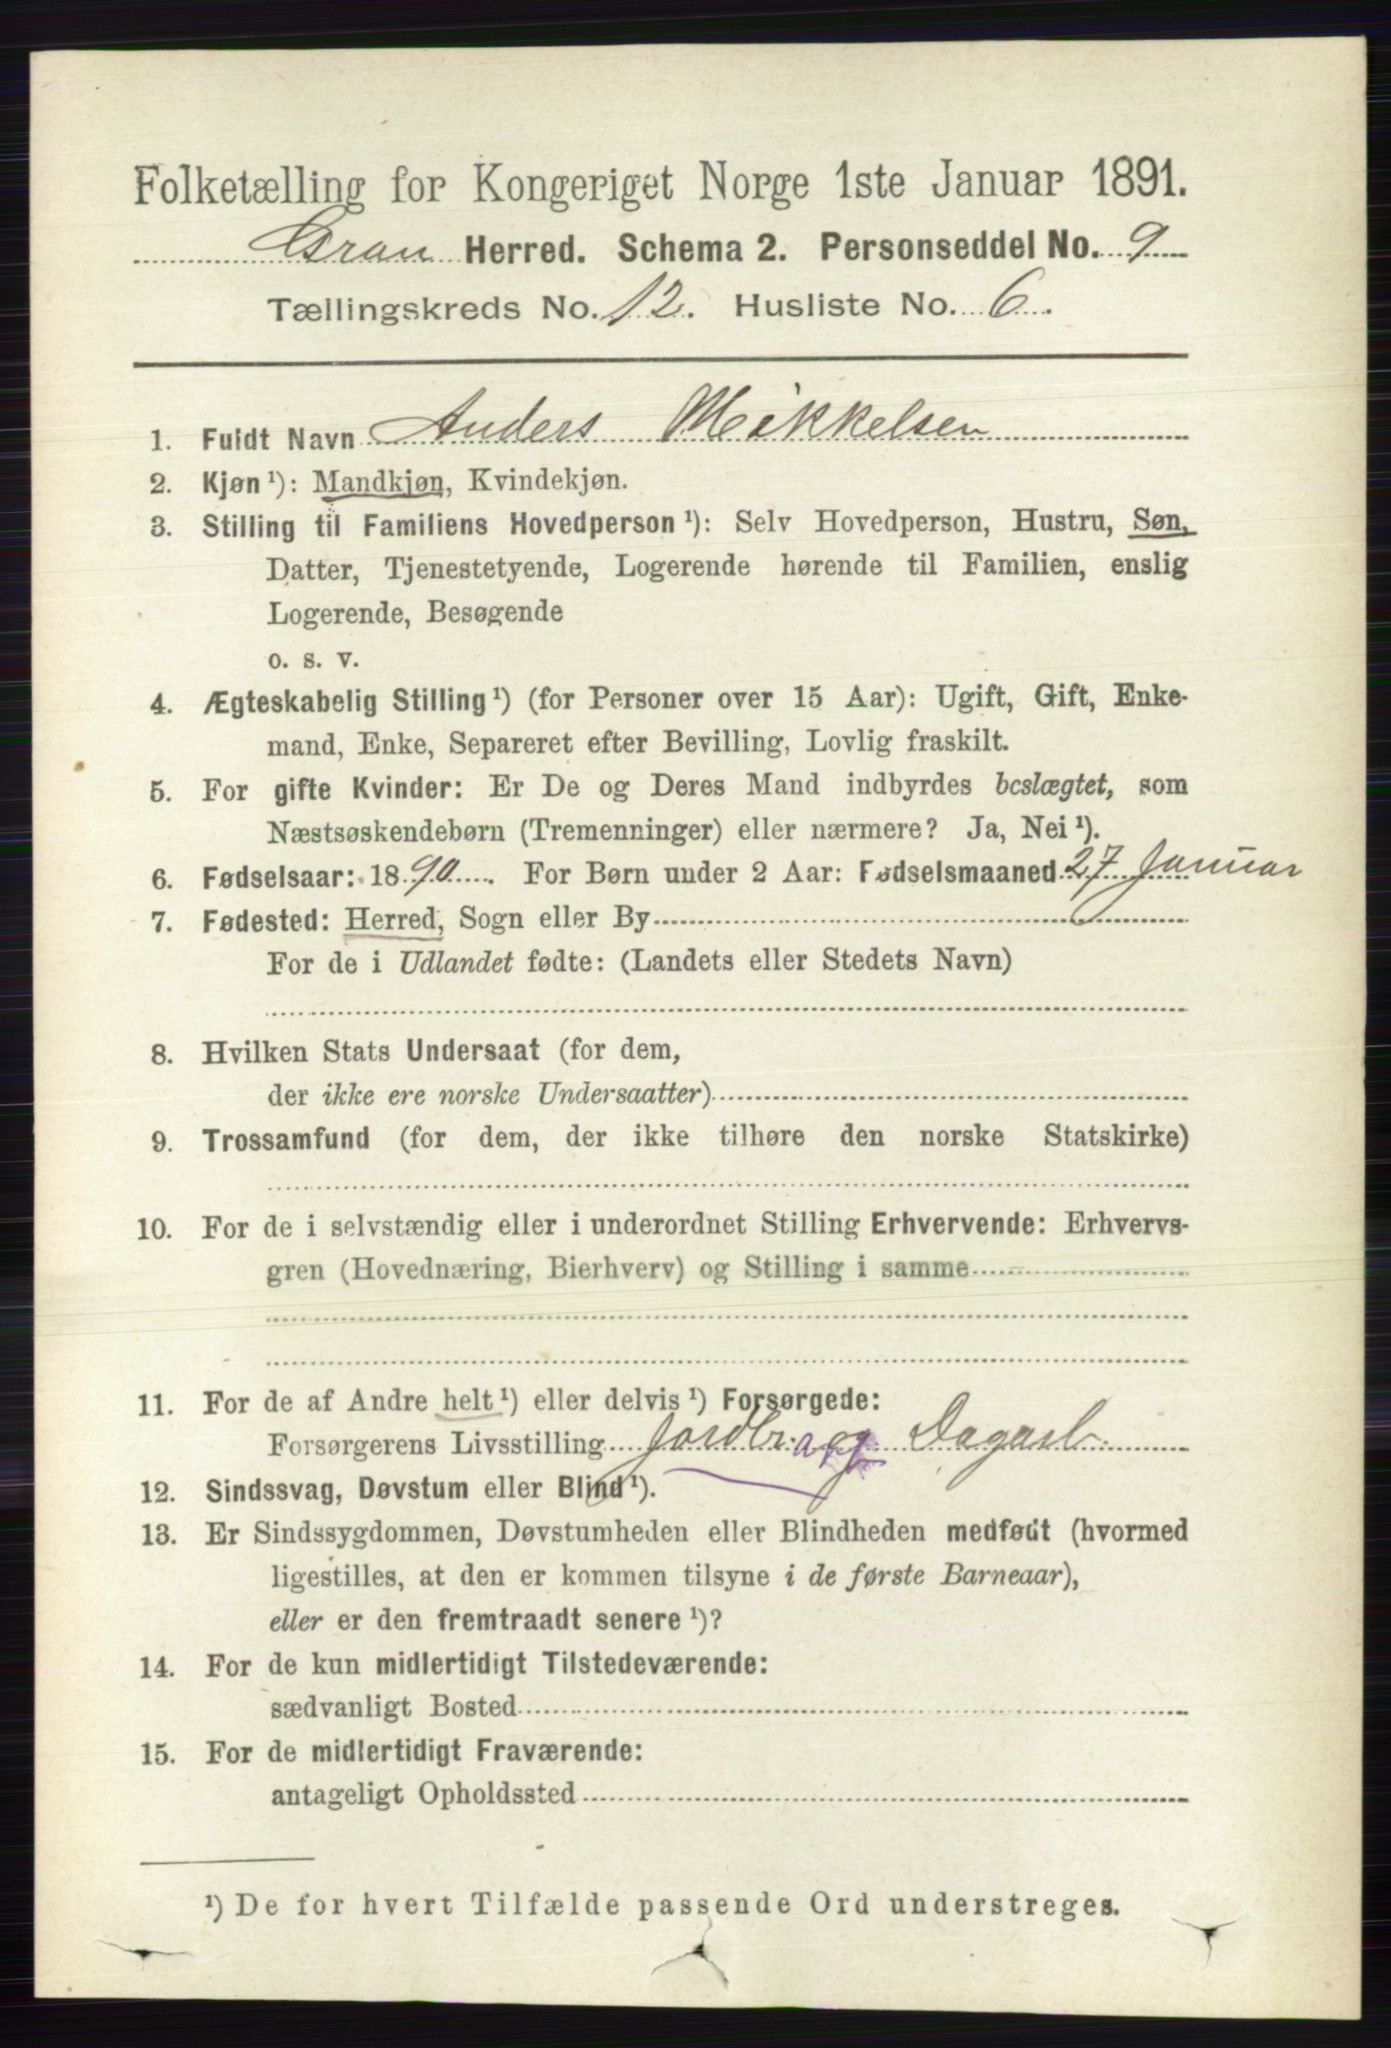 Folketælling for Kongeriget Norge 1ste Januar 1891.
Gran Herred. Schema 2. Personseddel No. 9
Tællingskreds No. 12. Husliste No. 6.
1. Fuldt Navn Anders Mikkelsen
2. Kjøn ¹): Mandkjøn, Kvindekjøn.
3. Stilling til Familiens Hovedperson ¹): Selv Hovedperson, Hustru, Søn,
Datter, Tjenestetyende, Logerende hørende til Familien, enslig
Logerende, Besøgende
o. s. v.
4. Ægteskabelig Stilling ¹) (for Personer over 15 Aar): Ugift, Gift, Enke-
mand, Enke, Separeret efter Bevilling, Lovlig fraskilt.
5. For gifte Kvinder: Er De og Deres Mand indbyrdes beslægtet, som
Næstsøskendebørn (Tremenninger) eller nærmere? Ja, Nei ¹).
6. Fødselsaar: 1890. For Børn under 2 Aar: Fødselsmaaned 27 Januar
7. Fødested: Herred, Sogn eller By
For de i Udlandet fødte: (Landets eller Stedets Navn)
8. Hvilken Stats Undersaat (for dem,
der ikke ere norske Undersaatter)
9. Trossamfund (for dem, der ikke tilhøre den norske Statskirke)
10. For de i selvstændig eller i underordnet Stilling Erhvervende: Erhvervs-
gren (Hovednæring, Bierhverv) og Stilling i samme
11. For de af Andre helt ¹) eller delvis ¹) Forsørgede:
Forsørgerens Livsstilling Jordbr. og Dagarb.
12. Sindssvag, Døvstum eller Blind ¹).
13. Er Sindssygdommen, Døvstumheden eller Blindheden medfødt (hvormed
ligestilles, at den er kommen tilsyne i de første Barneaar),
eller er den fremtraadt senere ¹)?
14. For de kun midlertidigt Tilstedeværende:
sædvanligt Bosted
15. For de midlertidigt Fraværende:
antageligt Opholdssted
¹) De for hvert Tilfælde passende Ord understreges.